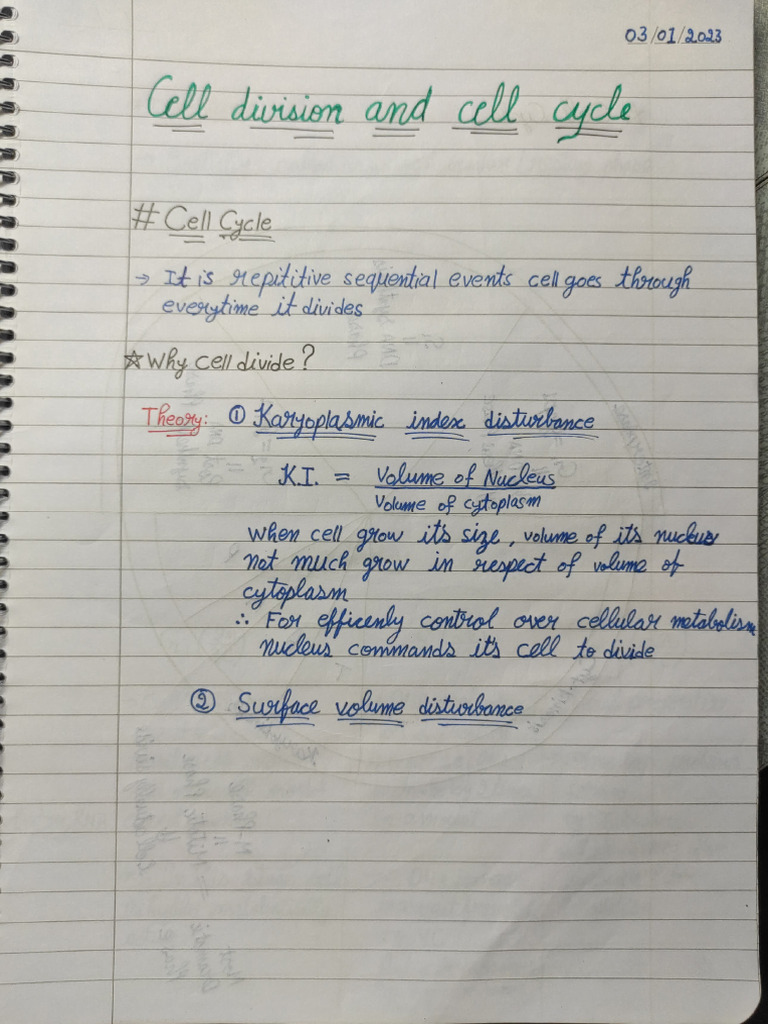 03/01/2023
Cell division and cell cycle
# Cell Cycle
→ It is repititive sequential events cell goes through
everytime it divides
☆ Why cell divide?
Theory: ① Karyoplasmic index disturbance
K.I. = Volume of Nucleus
Volume of cytoplasm
When cell grow it's size, volume of it's nucleus
not much grow in respect of volume of
cytoplasm
∴ For efficenly control over cellular metabolism
nucleus commands it's cell to divide
② Surface volume disturbance